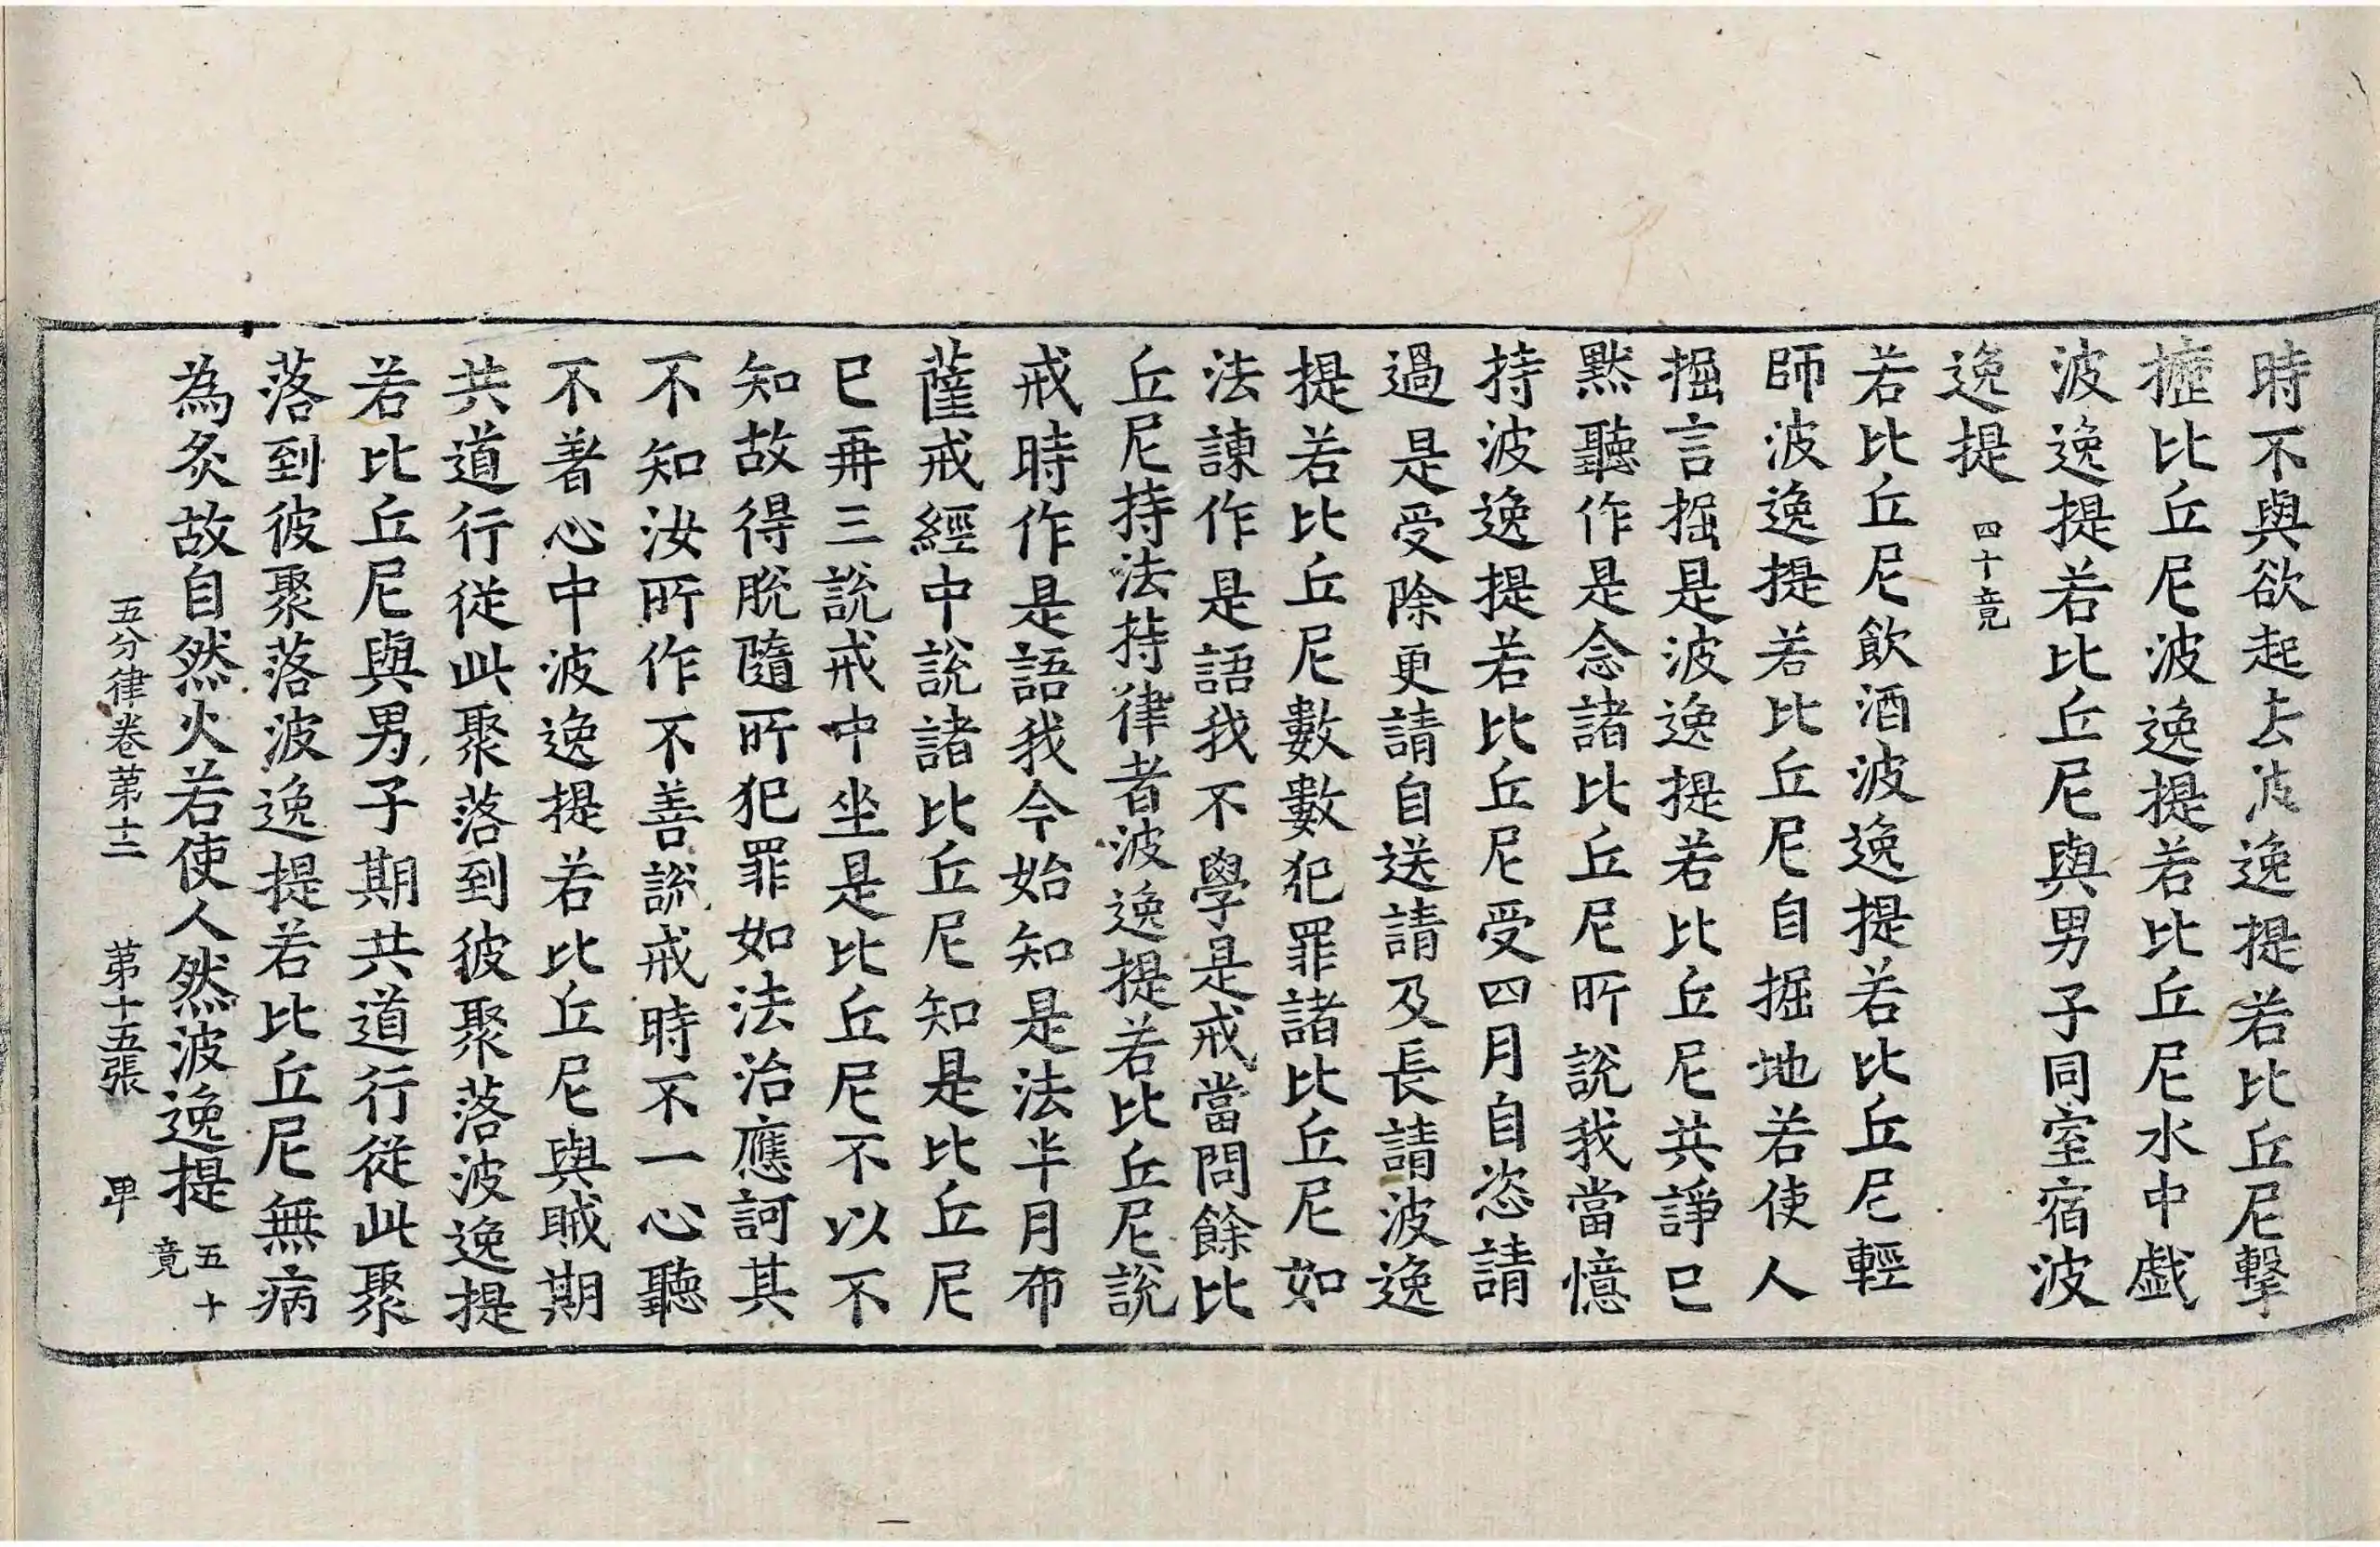 時不與欲起去波逸提若比丘尼擊
攊比丘尼波逸提若比丘尼水中戲
波逸提若比丘尼與男子同室宿波
逸提 四十竟
若比丘尼飲酒波逸提若比丘尼輕
師波逸提若比丘尼自掘地若使人
掘言掘是波逸提若比丘尼共諍已
默聽作是念諸比丘尼所說我當憶
持波逸提若比丘尼受四月自恣請
過是受除更請自送請及長請波逸
提若比丘尼數數犯罪諸比丘尼如
法諫作是語我不學是戒當問餘比
丘尼持法持律者波逸提若比丘尼說
戒時作是語我今始知是法半月布
薩戒經中說諸比丘尼知是比丘尼
已再三說戒中坐是比丘尼不以不
知故得脫隨所犯罪如法治應訶其
不知汝所作不善說戒時不一心聽
不著心中波逸提若比丘尼與賊期
共道行從此聚落到彼聚落波逸提
若比丘尼與男子期共道行從此聚
落到彼聚落波逸提若比丘尼無病
為炙故自然火若使人然波逸提 五十竟
五分律卷第十二 第十五張 甲